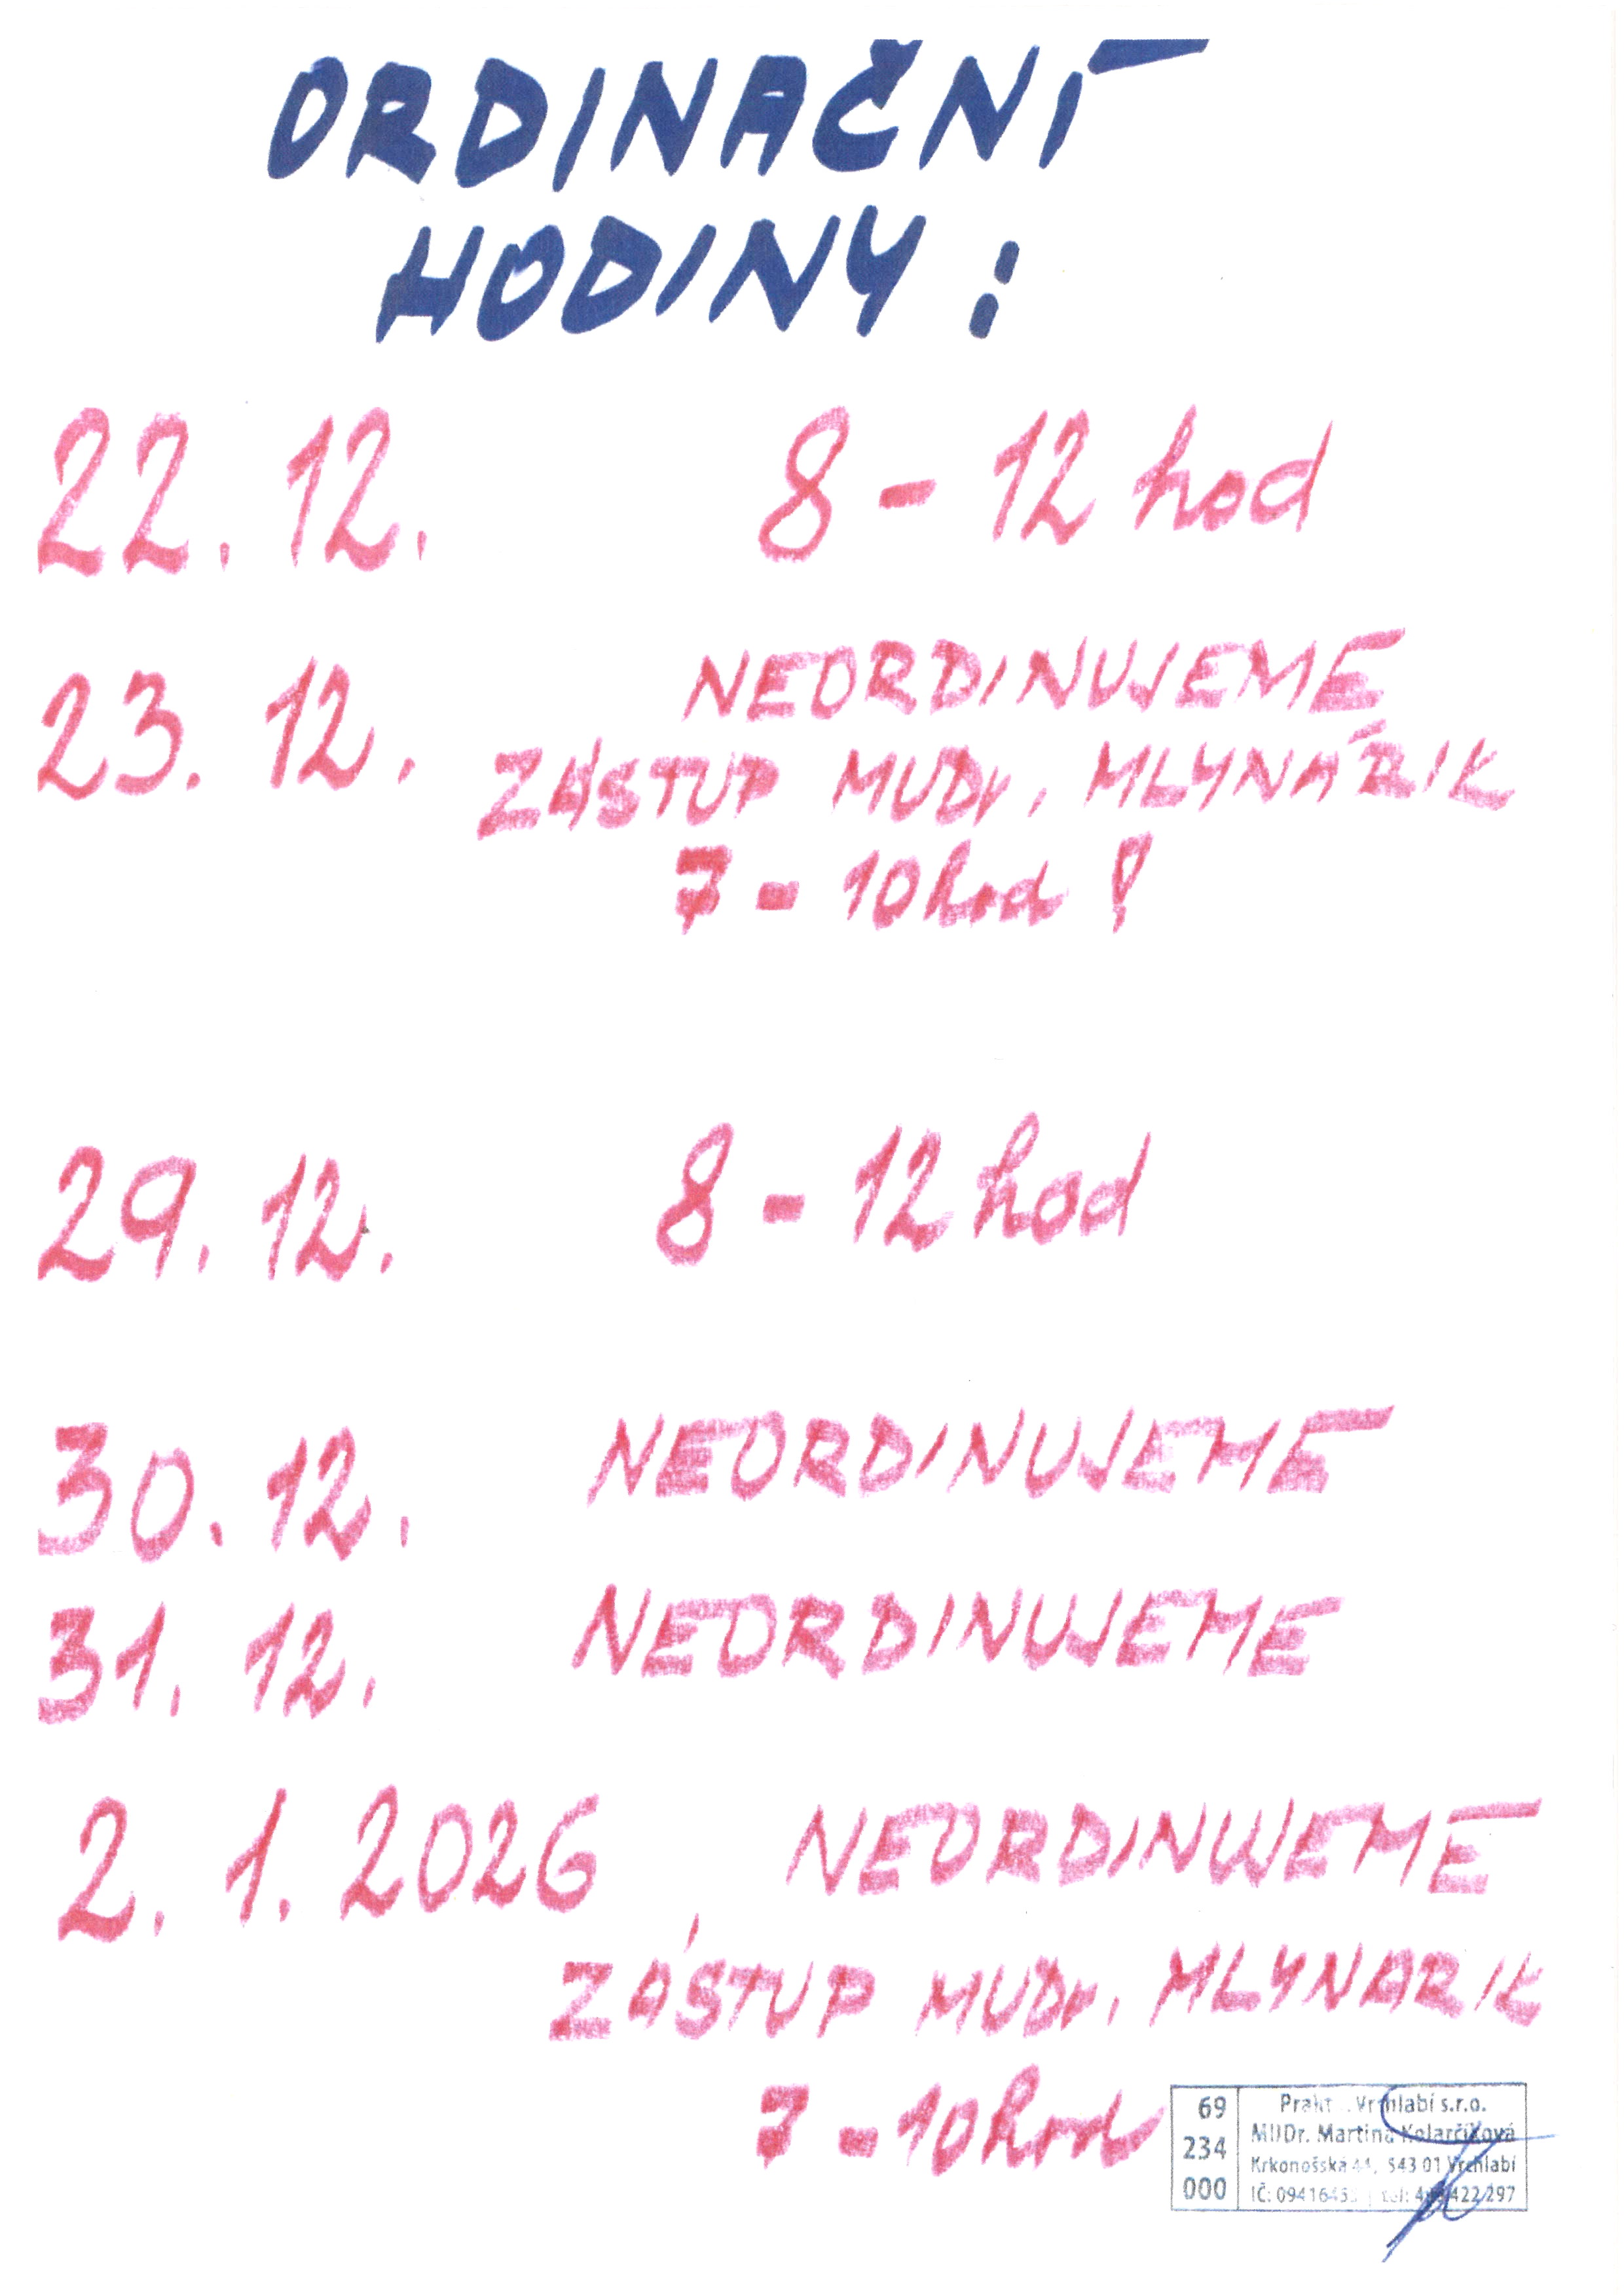 ORDINAČNÍ
HODINY:
22. 12. 8 - 12 hod
23. 12. NEORDINUJEME
ZÁSTUP MUDr. MLYNÁRIK
7 - 10 hod !
29. 12. 8 - 12 hod
30. 12. NEORDINUJEME
31. 12. NEORDINUJEME
2. 1. 2026 NEORDINUJEME
ZÁSTUP MUDr. MLYNARIK
7 - 10 hod
69
234
000
Vrchlabí s.r.o.
MUDr. Martina Kolarčíková
Krkonošská 543 01 Vrchlabí
IČ: tel: 422 297